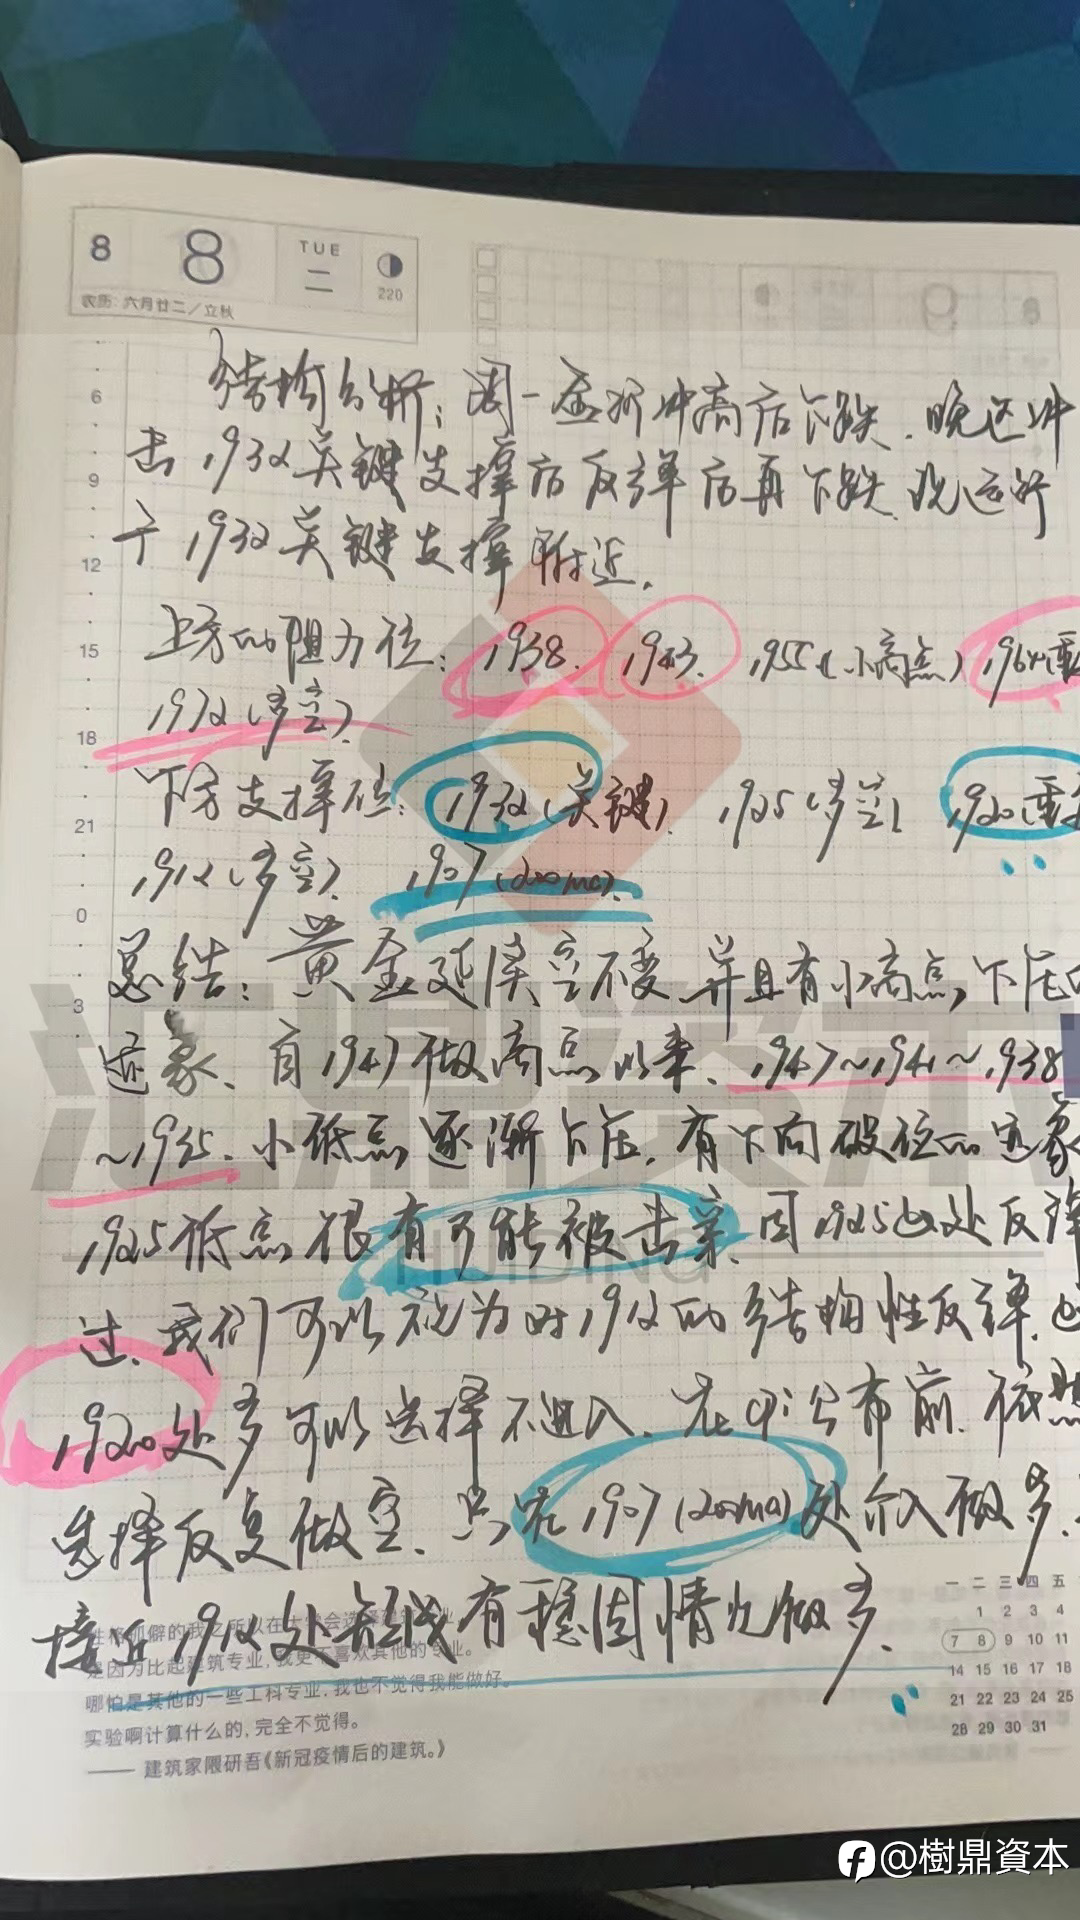 8 8 TUE 二 220
农历: 六月廿二／立秋
结构分析：周一金价冲高后下跌.晚还冲
击1932关键支撑后反弹后再下跌.现运行
于1932关键支撑附近.
上方的阻力位：1938. 1943. 1955(小高点) 1964(重
1972(多空).
下方支撑位：1932(关键). 1925(多空) 1920(重
1912(多空). 1907(200ma).
总结：黄金延续空不变.并且有小高点下压的
迹象.自1947做高点以来.1947~1941~1938
~1935.小低点逐渐下压.有下向破位的迹象
1925低点很有可能被击穿.因1925出处反弹
过.我们可以视为对1912的结构性反弹.
1920处多可以选择不进入.在cpi公布前.依然
选择反复做空.只在1907(200ma)处介入做多.
接近1912处短线有稳固情况做多.
6
9
12
15
18
21
0
3
汇鼎资本
HUIDING
是因为比起建筑专业,我更不喜欢其他的专业。
哪怕是其他的一些工科专业,我也不觉得我能做好。
实验啊计算什么的,完全不觉得。
—— 建筑家隈研吾《新冠疫情后的建筑。》
一 二 三 四 五
1 2 3 4
7 8 9 10 11
14 15 16 17 18
21 22 23 24 25
28 29 30 31
@樹鼎資本